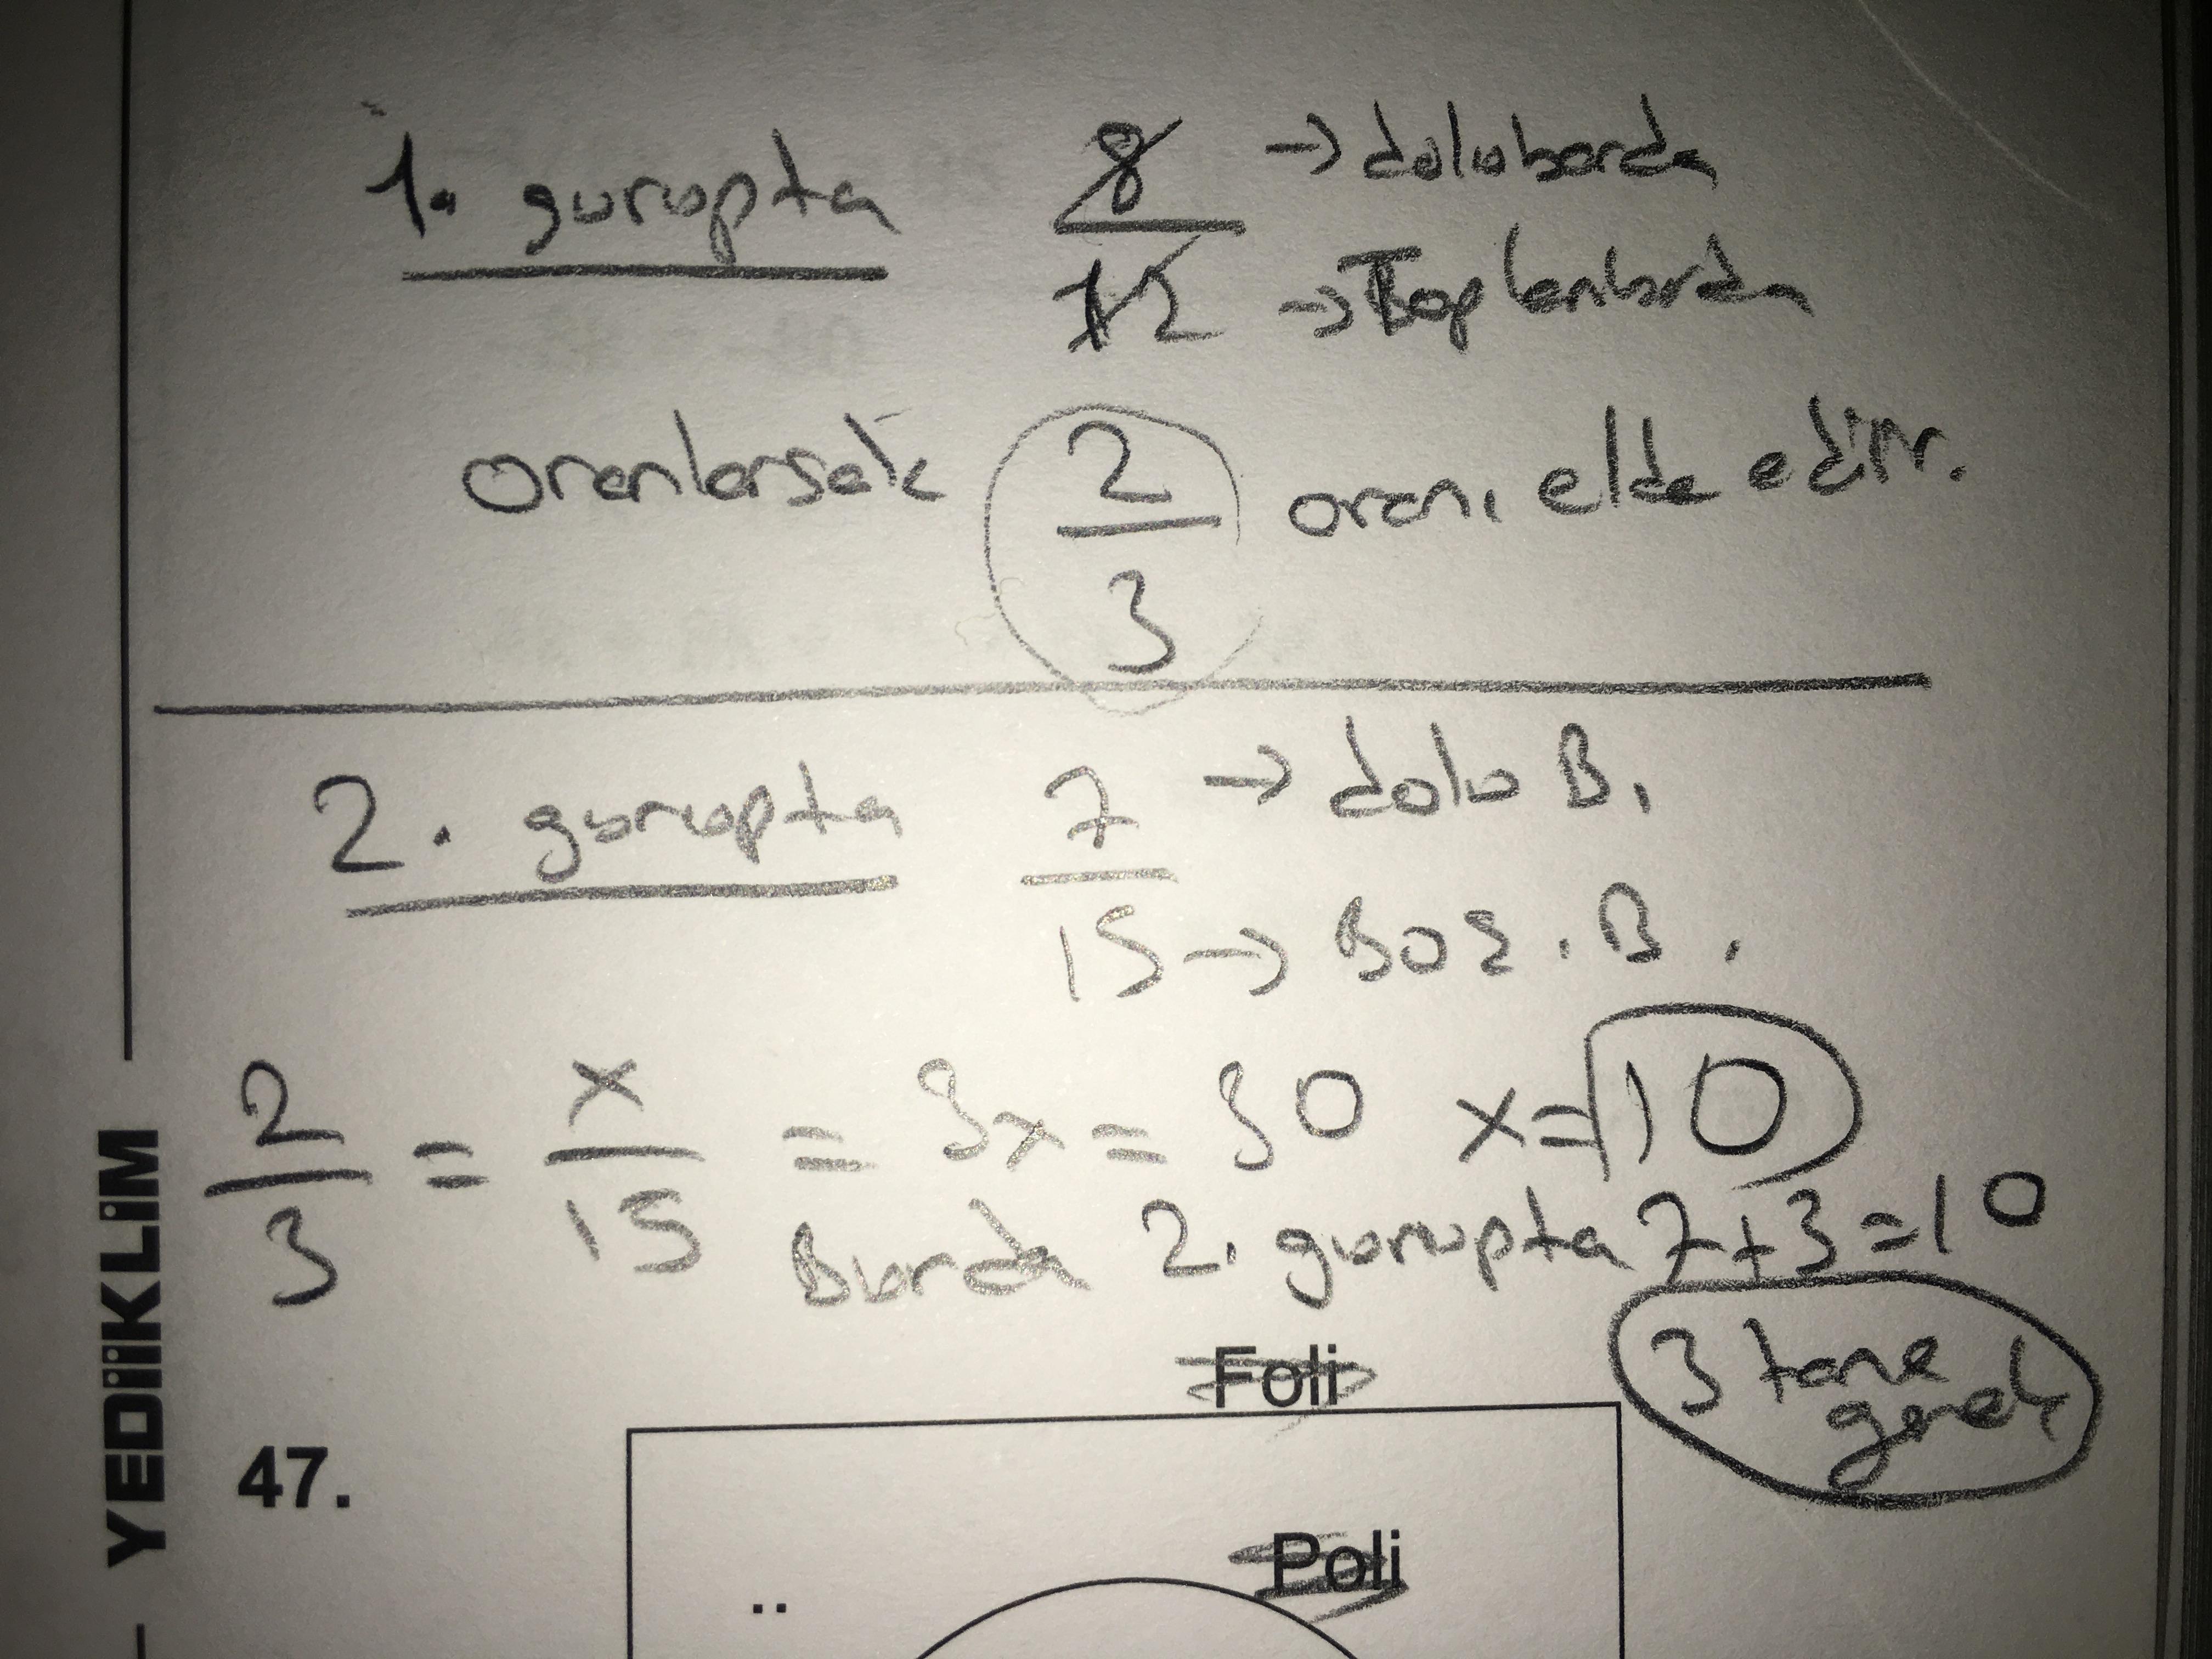 1. gurupta 8/12 → dolu barda
→ Toplanbarda
oranlarsak 2/3 oranı elde edilir.
2. gurupta 7/15 → dolu B.
→ Boş. B.
2/3 = x/15 = 3x = 30 x = 10
Burda 2. gurupta 7+3=10
3 tane gerek
Foli
47.
Poli
YEDİİKLİM